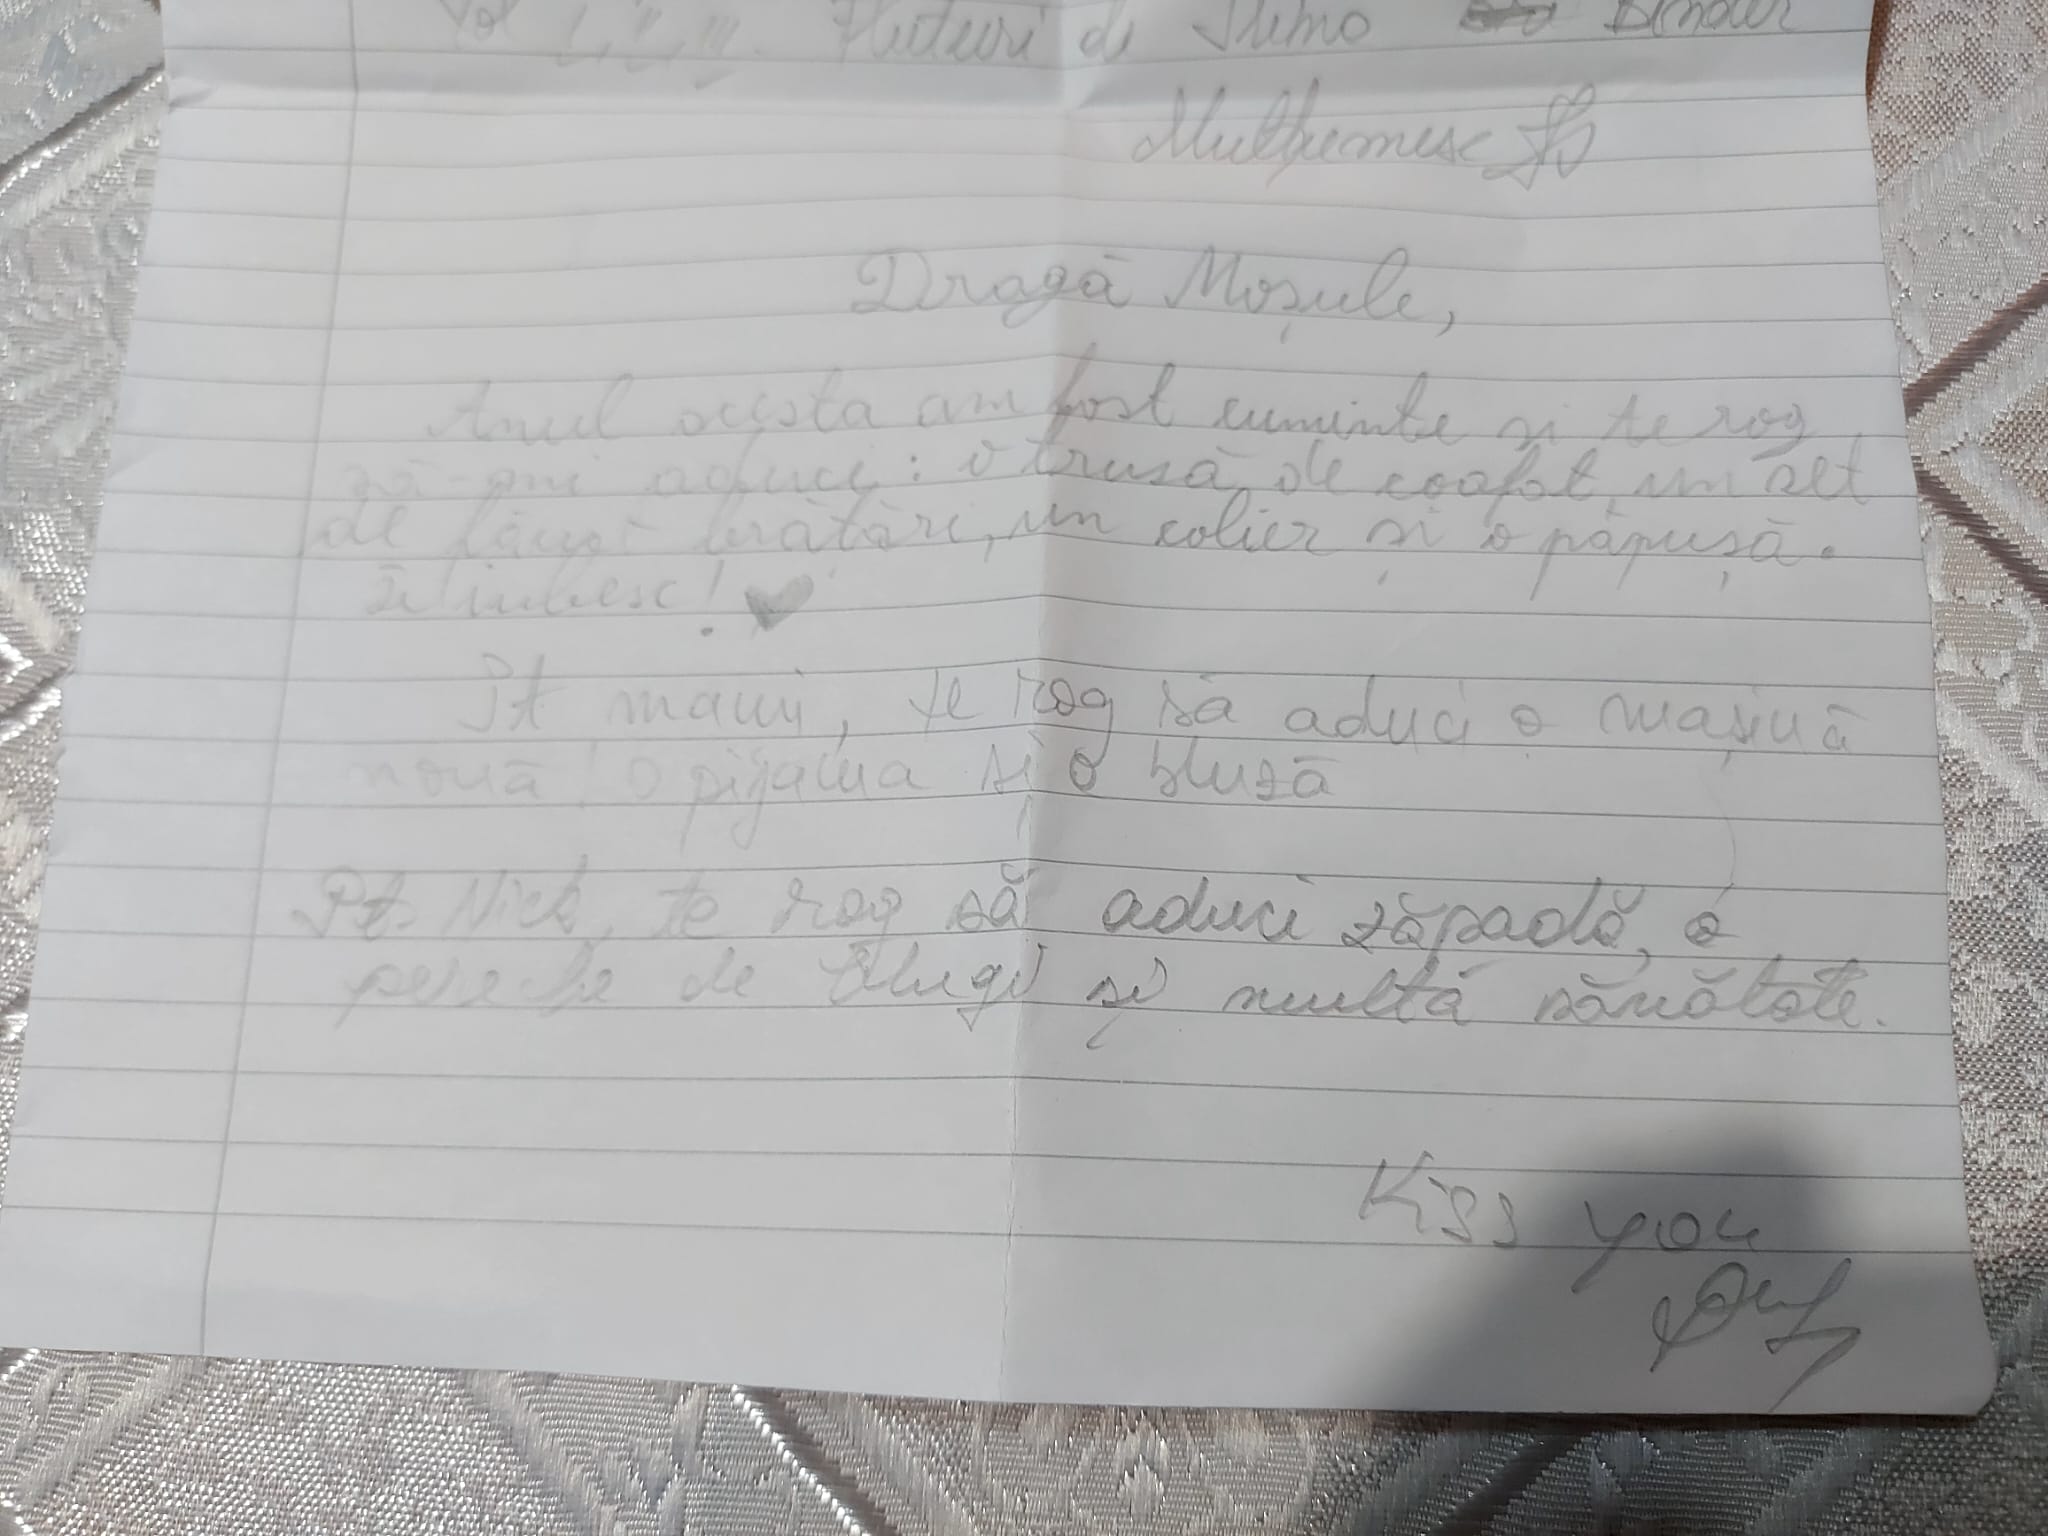 Vol I, II, III. Fluturi de Irina Binder
Mulțumesc
Dragă Moșule,
Anul acesta am fost cuminte și te rog
să-mi aduci: o trusă de coafat, un set
de făcut brățări, un colier și o păpușă.
Te iubesc!
Pt mami, te rog să aduci o mașină
nouă! o pijama și o bluză
Pt. Nick, te rog să aduci zăpadă, o
pereche de blugi și multă sănătate.
Kiss you